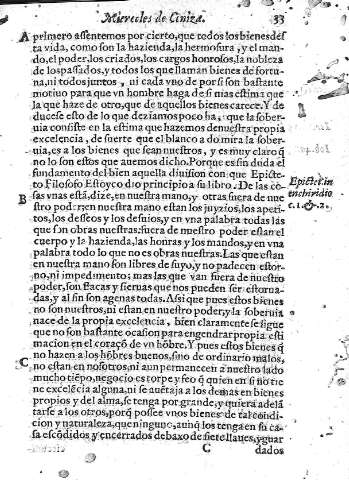 Miercoles de Ciniza. 33
A primero assentemos por cierto, que todos los bienes des
ta vida, como son la hazienda, la hermosura, y el man-
do, el poder, los criados, los cargos honrosos, la nobleza
de los passados, y todos los que llaman bienes de fortu-
na, ni todos juntos, ni cada vno de por si son bastante
motiuo para que vn hombre haga de si mas estima que
la que haze de otro, que de aquellos bienes carece. Y de
ducese esto de lo que deziamos poco ha, que la sober-
uia consiste en la estima que hazemos de nuestra propia
excelencia, de suerte que el blanco a do mira la sober-
uia, es a los bienes que sean nuestros, y es muy claro q̃
no lo son estos que auemos dicho. Porque es sin duda el
fundamento del bien aquella diuision con que Epicte-
to Filosofo Estoyco dio principio a su libro. De las co-
Epictet. in
B sas vnas està, dize, en nuestra mano, y otras fuera de nues
enchiridio
tro poder: en nuestra mano estan los juyzios, los apeti-
c. 1. & 2.
tos, los desseos y los desuios, y en vna palabra todas las
que son obras nuestras: fuera de nuestro poder estan el
cuerpo y la hazienda, las honras y los mandos, y en vna
palabra todo lo que no es obras nuestras. Las que estan
en nuestra mano son libres de suyo, y no padecen estor-
no, ni impedimento: mas las que van fuera de nuestro
poder, son flacas y sieruas que nos pueden ser estorua-
das, y al fin son agenas todas. Assi que pues estos bienes
no son nuestros, ni estan en nuestro poder, y la soberuia
nace de la propia excelencia, bien claramente se sigue
que no son bastante ocasion para engendrar propia esti
macion en el coraçõ de vn hõbre. Y pues estos bienes q̃
no hazen a los hõbres buenos, sino de ordinario malos,
C no estan en nosotros, ni aun permanecen a nuestro lado
mucho tiẽpo, negocio es torpe y feo q̃ quien en si no tie
ne excelẽcia alguna, ni se auẽtaja a los demas en bienes
propios y del alma, se tenga por grande, y quiera adelã
tarse a los otros, porq̃ possee vnos bienes de tal condi-
cion y naturaleza, que ninguno, aunq̃ los tenga en su ca-
sa escõdidos y encerrados debaxo de siete llaues, y guar
C dados